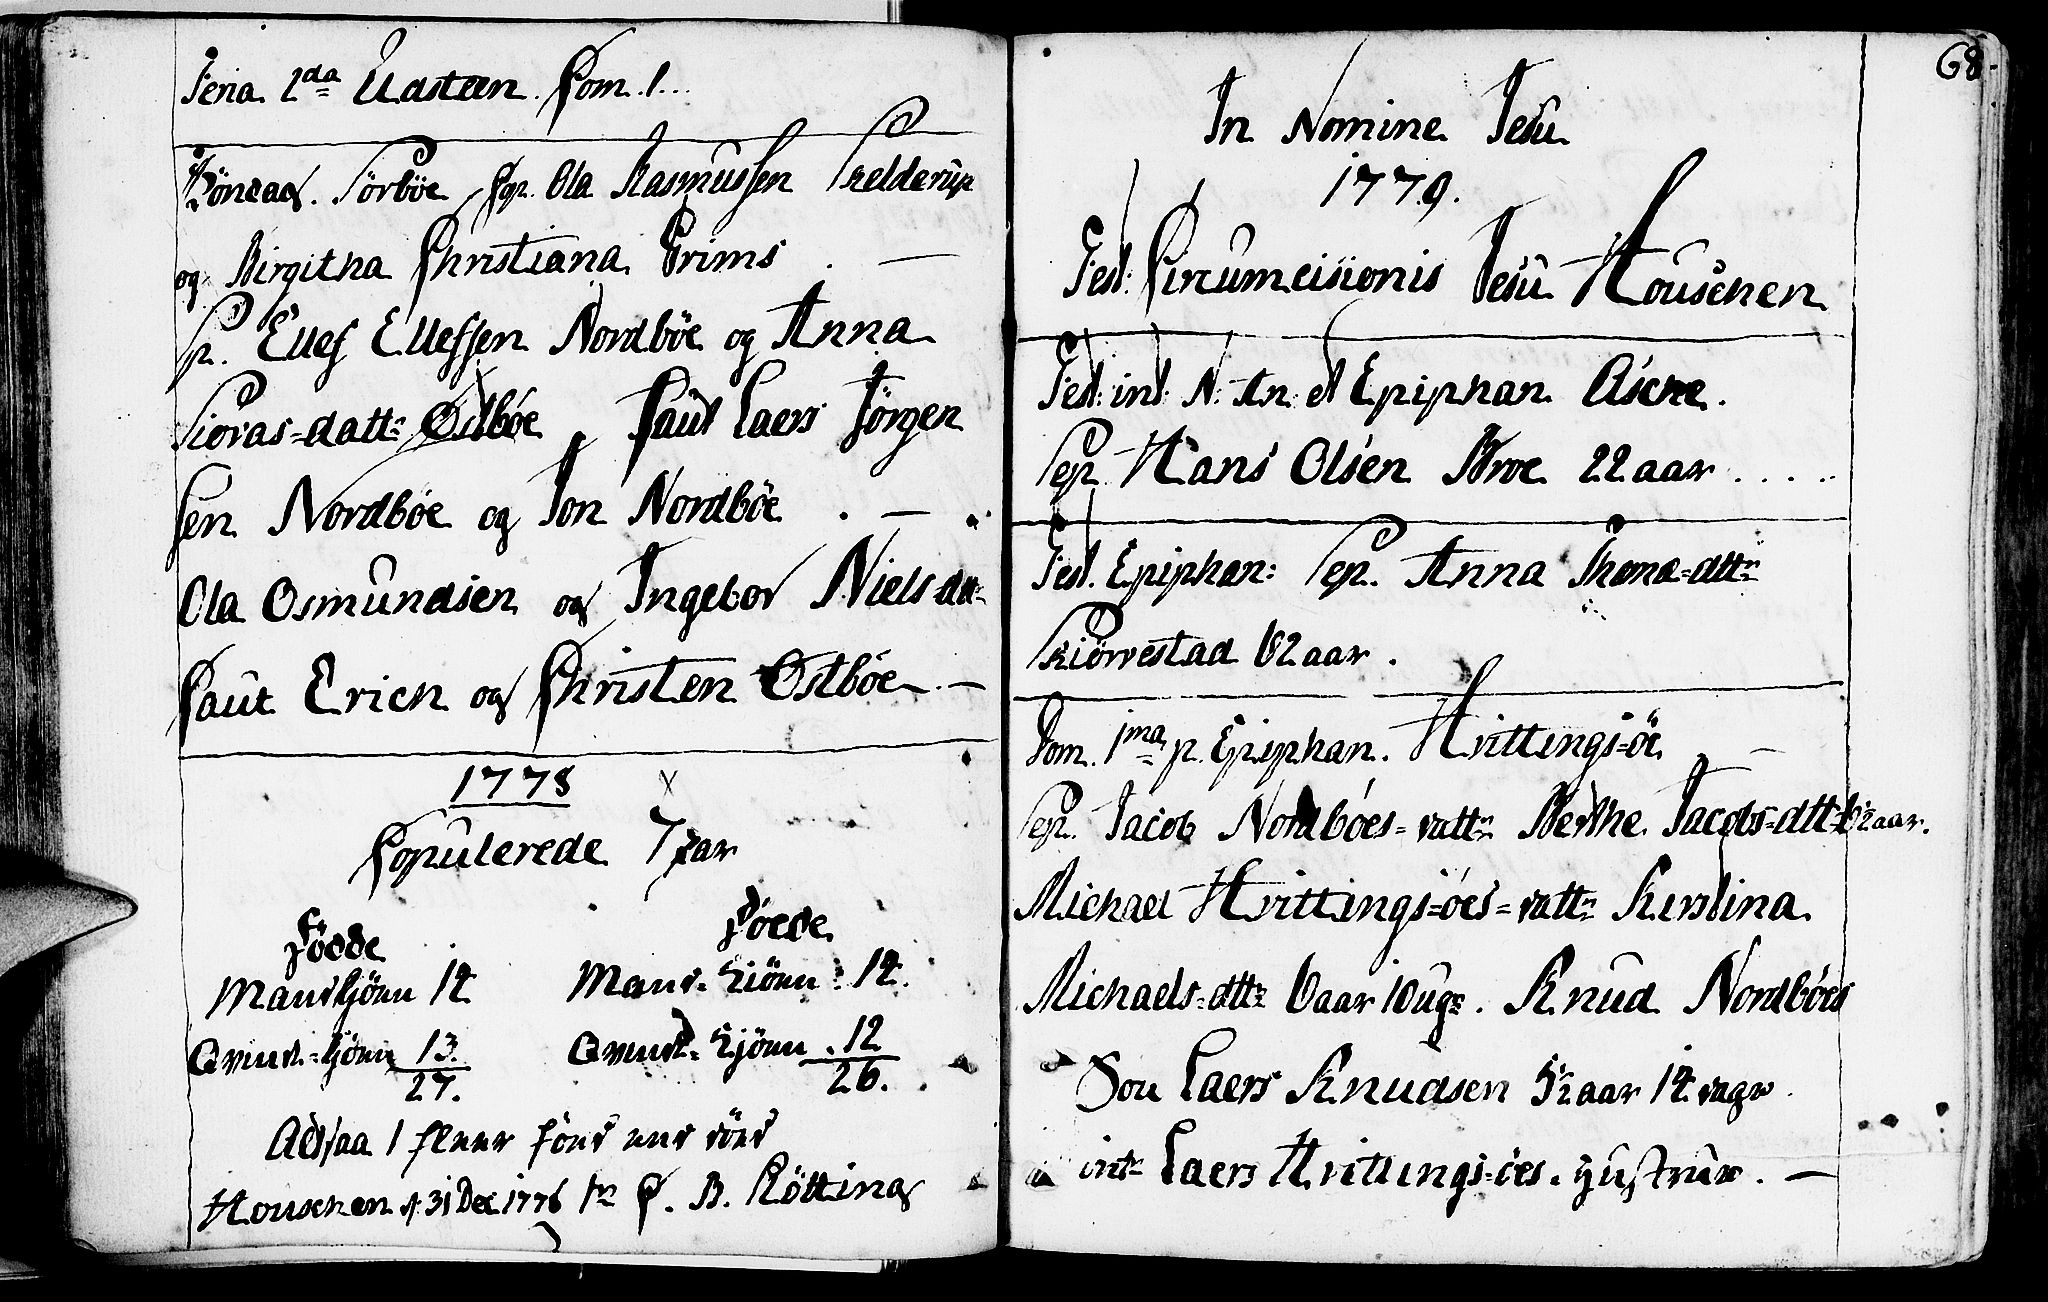 Feria 2da Udsteen. Dom. 1...
Söndag. Sörböe Sp. Ola Rasmussen Skelderup
og Birgitha Christiana Prims . —
Sp. Ellef Ellefsen Nordböe og Anna
Sioras=datt: Ostböe Paul Laers Jörgen
sen Nordböe og Jon Nordböe . —
Ola Osmundsen og Ingebor Niels-dtt:
Paul Erich og Christen Ostböe. —
1778
Copulerede 7 par
Födde
Döede
Mandkjönn 14
Mand-Kjönn: 14.
Qvind-kjönn 13.
Qvind-Kjönn .12
27.
26.
Altsaa 1 fleer föed end döed
Houschen d 31 Dec. 1778 C. B. Rötting
68.
In Nomine Jesu
1779.
Fest: Circumcisionis Jesu Houschen
Fest: int: N. An. et Epiphan Asche.
Sep. Hans Olsen Broe 22 aar .....
Fest. Epiphan: Sep. Anna Thoma=dttr
Skiörrestad 62 aar .
Dom. 1ma p. Epiphan. Hvittings=öe —
Sep. Jacob Nordböes=dattr Berthe Jacobs=dtt: 6½ aar.
Michael Hvittings=öes=dattr Kirstina
Michaels-dttr 6 aar 10 ugr. Knud Nordböes
Son Laers Knudsen 5½ aar 14 dage
intr Laers Hvittings=öes. Hustrue. —